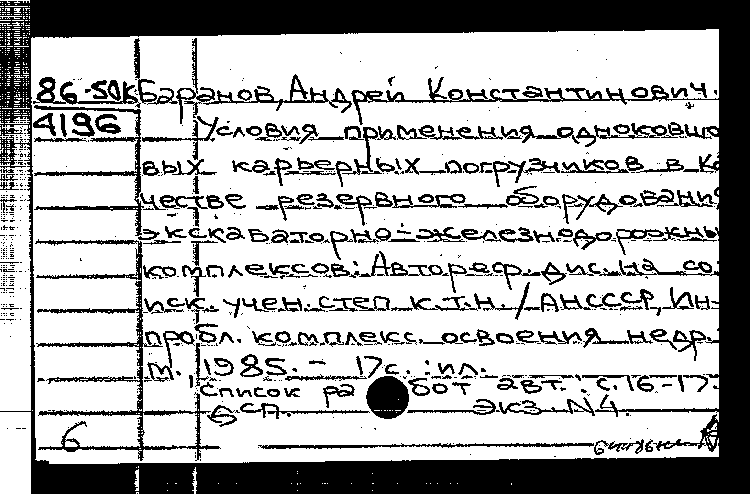 86-50к Баранов, Андрей Константинович.
4196 Условия применения одноковшо
вых карьерных погрузчиков в ка
честве резервного оборудования
экскаваторно-железнодорожны
комплексов: Автореф. дис. на со
иск. учен. степ к.т.н. / АН СССР, Ин-
пробл. комплекс. освоения недр.
М., 1985. - 17с. : ил.
Список работ авт.: с. 16-17.
Б сп. Экз. N4.
6